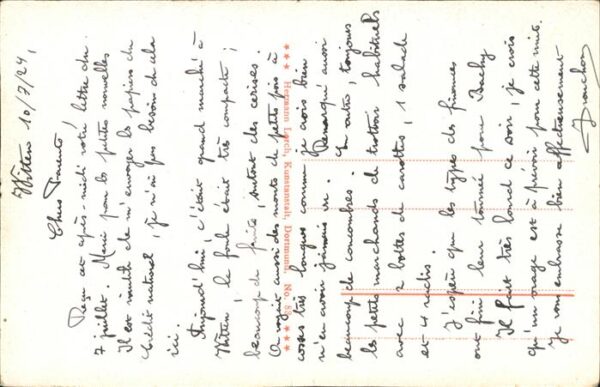 Witten 10/7/24,
Chers Parents
Reçu cet après-midi votre lettre du
7 juillet. Merci pour les petites nouvelles
Il est inutile de m'envoyer les papiers du
Crédit naturel, je n'ai pas besoin de cela
ici.
Aujourd'hui, c'était grand marché à
Witten; la foule était très compacte;
beaucoup de fruits, surtout des cerises.
On voyait aussi des monts de petits pois à
cosses très longues comme je crois bien
n'en avoir jamais vu. Remarqué aussi
beaucoup de concombres. En outre, toujours
les petits marchands de trottoir habituels
avec 2 bottes de carottes, 1 salade
et 4 radis.
J'espère que les types des finances
ont fini leur tournée pour Bachy
Il fait très lourd ce soir, je crois
qu'un orage est à prévoir pour cette nuit.
Je vous embrasse bien affectueusement
*** Hermann Lorch, Kunstanstalt, Dortmund, No. ***